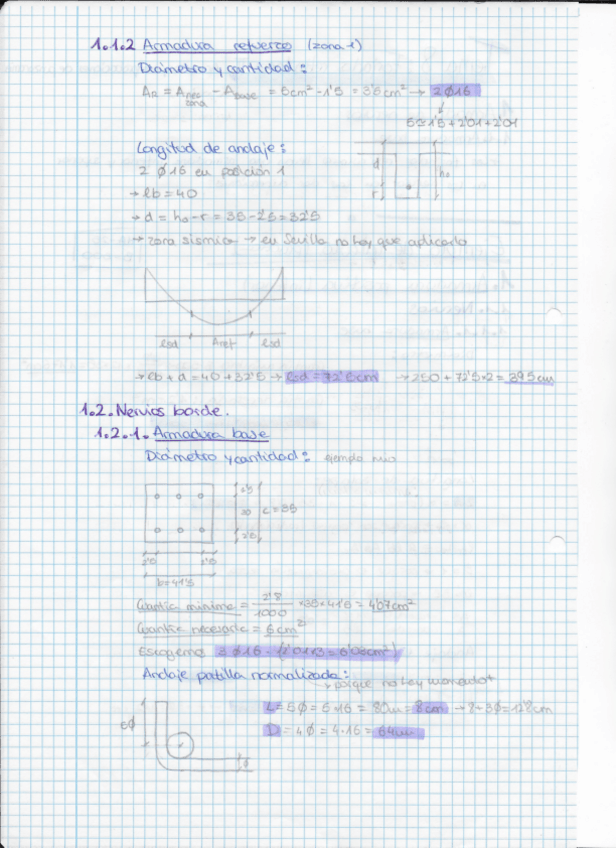 1.1.2 Armadura refuerzo (zona 1)
Diámetro y cantidad:
AR = Anec zona - Abase = 5cm² - 1'5 = 3'5cm² → 2ϕ16
5≈1'5+2'01+2'01
Longitud de anclaje:
2 ϕ16 en posición 1
d
h₀
r
→ lb = 40
→ d = h₀ - r = 35 - 2'5 = 32'5
→ zona sísmica → en Sevilla no hay que aplicarlo
lsd Aref lsd
→ lb + d = 40 + 32'5 → = 72'5cm → 250 + 72'5·2 = 395cm
1.2. Nervios borde.
1.2.1. Armadura base
Diámetro y cantidad: ejemplo mío
2'5
30
c = 35
2'5
2'5 2'5
b = 41'5
Cuantía mínima = 2'8/1000 · 35 · 41'5 = 4'07cm²
Cuantía necesaria = 6cm²
Escogemos 3 ϕ16 - (2'01×3 = 6'03cm²)
Anclaje patilla normalizada:
→ porque no hay momento +
L = 5ϕ = 5·16 = 80mm = 8cm → 8+3ϕ = 12'8cm
D = 4ϕ = 4·16 = 64mm
ϕ